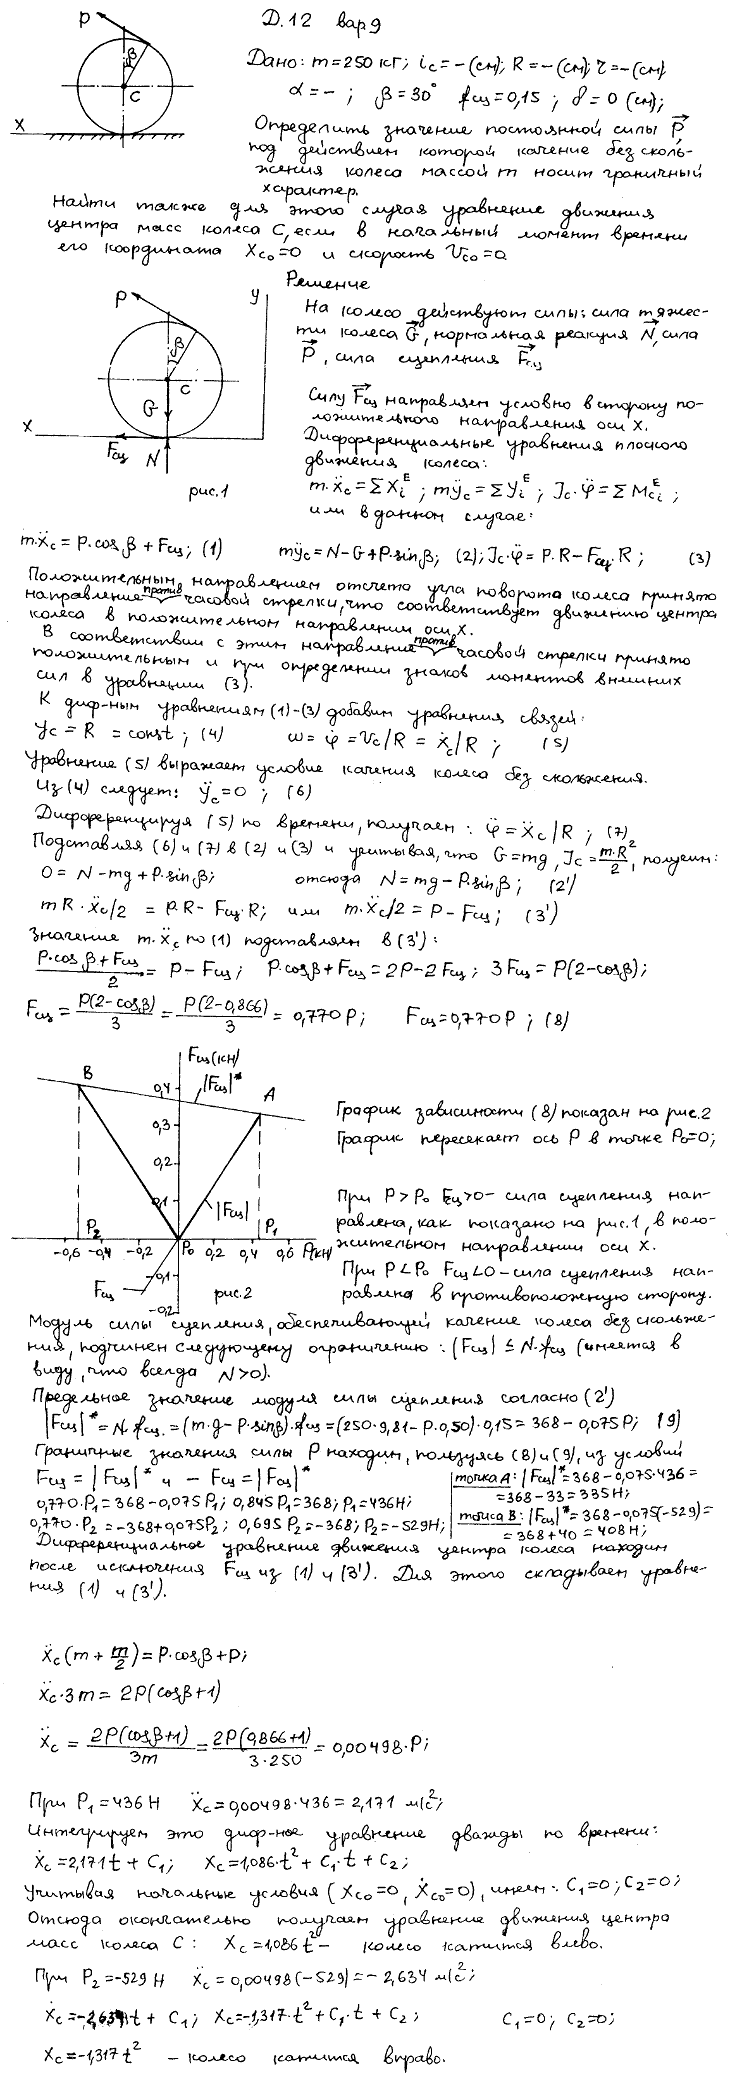 Д.12 вар 9
P
β
C
X
Дано: m=250 кг; i_c = –(см); R = –(см); r = –(см)
α = – ; β=30° f_сц=0,15 ; δ = 0 (см);
Определить значение постоянной силы P⃗,
под действием которой качение без сколь-
жения колеса массой m носит граничный
характер.
Найти также для этого случая уравнение движения
центра масс колеса С, если в начальный момент времени
его координата X_C0=0 и скорость V_C0=0
Решение
P
y
β
C
G⃗
X
F_сц
N
рис.1
На колесо действуют силы: сила тяжес-
ти колеса G⃗, нормальная реакция N⃗, сила
P⃗, сила сцепления F⃗_сц
Силу F⃗_сц направляем условно в сторону по-
ложительного направления оси X.
Дифференциальные уравнения плоского
движения колеса:
m·ẍ_c = ΣX_i^E ; mÿ_c = ΣY_i^E ; J_c·φ̈ = ΣM_ci^E ;
или в данном случае:
m·ẍ_c = P·cosβ + F_сц ; (1) mÿ_c = N–G+P·sinβ; (2); J_c·φ̈ = P·R–F_сц·R ; (3)
Положительным направлением отсчета угла поворота колеса принято
направление против часовой стрелки, что соответствует движению центра
колеса в положительном направлении оси X.
В соответствии с этим направление против часовой стрелки принято
положительным и при определении знаков моментов внешних
сил в уравнении (3).
К диф-ным уравнениям (1)-(3) добавим уравнения связей:
y_c = R = const ; (4) ω = φ̇ = V_c/R = ẋ_c/R ; (5)
Уравнение (5) выражает условие качения колеса без скольжения.
Из (4) следует: ÿ_c=0 ; (6)
Дифференцируя (5) по времени, получаем: φ̈ = ẍ_c/R ; (7)
Подставляя (6) и (7) в (2) и (3) и учитывая, что G=mg, J_c = m·R²/2, получим:
0 = N–mg+P·sinβ; отсюда N=mg–P·sinβ ; (2')
mR·ẍ_c/2 = P·R–F_сц·R; или m·ẍ_c/2 = P–F_сц ; (3')
Значение m·ẍ_c по (1) подставляем в (3'):
(P·cosβ+F_сц)/2 = P–F_сц; P·cosβ+F_сц = 2P–2F_сц ; 3F_сц = P(2–cosβ);
F_сц = P(2–cosβ)/3 = P(2–0,866)/3 = 0,770P; F_сц=0,770P ; (8)
F_сц(кН)
B
0,4
|F_сц|*
A
0,3
0,2
0,1
|F_сц|
P₂
P₁
-0,6 -0,4 -0,2 P₀ 0,2 0,4 0,6 P(кН)
-0,1
F_сц
рис.2
-0,2
График зависимости (8) показан на рис.2
График пересекает ось P в точке P₀=0;
При P>P₀ F_сц>0– сила сцепления нап-
равлена, как показано на рис.1, в поло-
жительном направлении оси X.
При P<P₀ F_сц<0–сила сцепления нап-
равлена в противоположную сторону.
Модуль силы сцепления, обеспечивающей качение колеса без скольже-
ния, подчинен следующему ограничению: |F_сц| ≤ N·f_сц (имеется в
виду, что всегда N>0).
Предельное значение модуля силы сцепления согласно (2')
|F_сц|* = N·f_сц = (m·g–P·sinβ)·f_сц=(250·9,81–P·0,50)·0,15=368–0,075P; (9)
Граничные значения силы P находим, пользуясь (8) и (9), из условий
F_сц = |F_сц|* и –F_сц = |F_сц|*
0,770·P₁=368–0,075P₁; 0,845P₁=368; P₁=436Н;
0,770·P₂=–368+0,075P₂; 0,695P₂=–368; P₂=–529Н;
точка A: |F_сц|*=368–0,075·436=
=368–33=335Н;
точка B: |F_сц|*=368–0,075(–529)=
=368+40=408Н;
Дифференциальное уравнение движения центра колеса находим
после исключения F_сц из (1) и (3'). Для этого складываем уравне-
ния (1) и (3').
ẍ_c(m+m/2)=P·cosβ+P;
ẍ_c·3m = 2P(cosβ+1)
ẍ_c = 2P(cosβ+1)/3m = 2P(0,866+1)/3·250 = 0,00498·P;
При P₁=436Н ẍ_c=0,00498·436=2,171 м/с²;
Интегрируем это диф-ное уравнение дважды по времени:
ẋ_c=2,171t+C₁; x_c=1,086·t²+C₁·t+C₂;
Учитывая начальные условия (X_C0=0, Ẋ_C0=0), имеем: C₁=0; C₂=0;
Отсюда окончательно получаем уравнение движения центра
масс колеса С: X_c=1,086t²– колесо катится влево.
При P₂=–529Н ẍ_c=0,00498(–529)=–2,634 м/с²;
ẋ_c=–2,634t+C₁; x_c=–1,317·t²+C₁·t+C₂; C₁=0; C₂=0;
x_c=–1,317t² – колесо катится вправо.